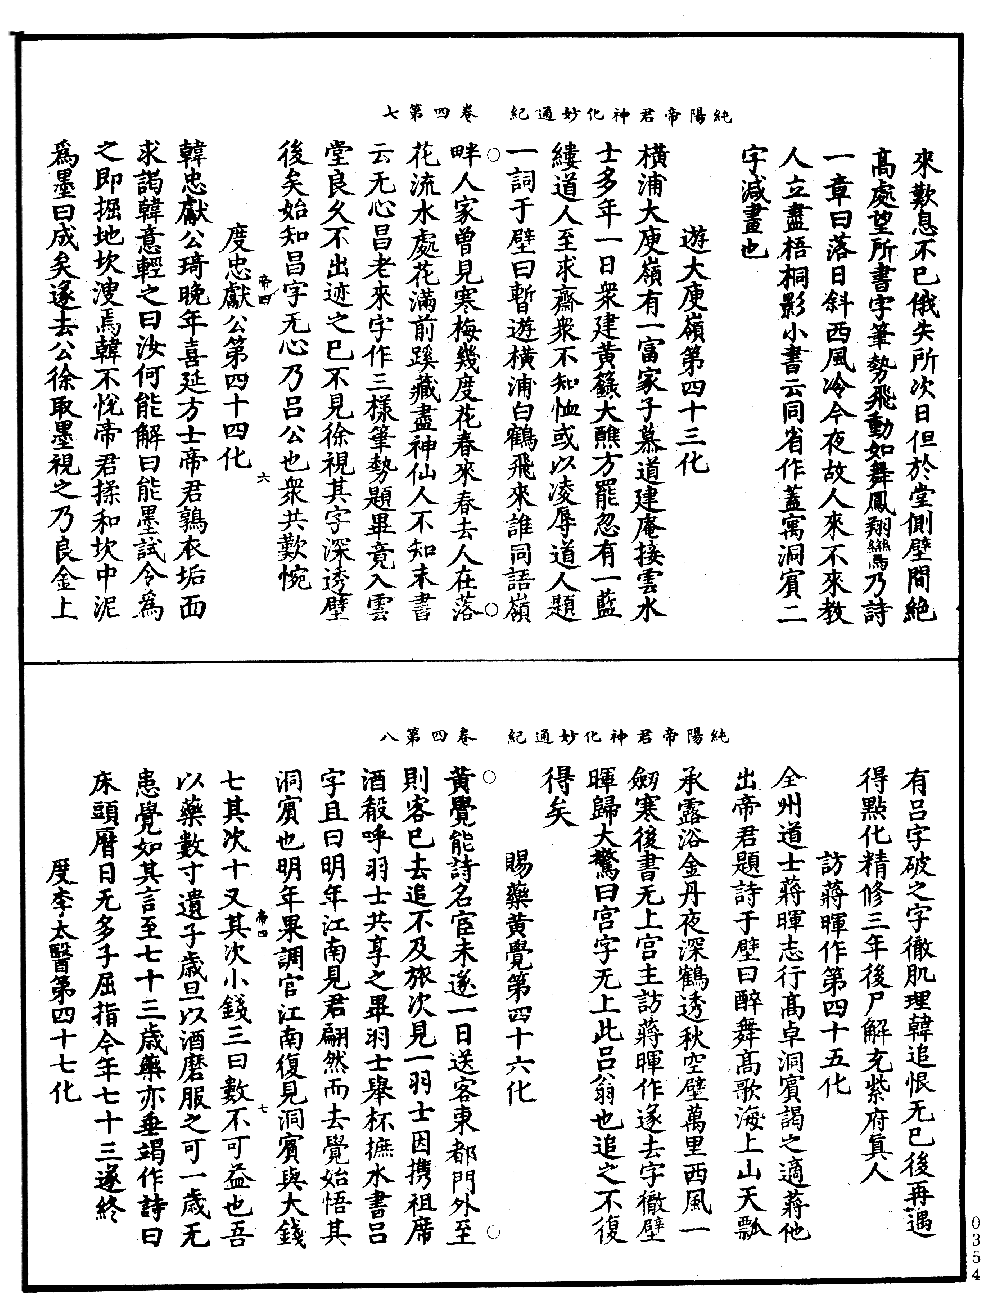 純陽帝君神化妙通紀　卷四第七
來歎息不已俄失所次日但於堂側壁間絕
高處望所書字筆勢飛動如舞鳳翔鸞乃詩
一章曰落日斜西風冷今夜故人來不來教
人立盡梧桐影小書云同省作蓋寓洞賓二
字減畫也
遊大庾嶺第四十三化
橫浦大庾嶺有一富家子慕道建庵接雲水
士多年一日衆建黃籙大醮方罷忽有一藍
縷道人至求齋衆不知恤或以凌辱道人題
一詞于壁曰暫遊橫浦白鶴飛來誰同語嶺
畔人家曾見寒梅幾度花春來春去人在落
花流水處花滿前蹊藏盡神仙人不知末書
云无心昌老來字作三樣筆勢題畢竟入雲
堂良久不出迹之已不見徐視其字深透壁
後矣始知昌字无心乃呂公也衆共歎惋
度忠獻公第四十四化
帝四
六
韓忠獻公琦晚年喜延方士帝君鶉衣垢面
求謁韓意輕之曰汝何能解曰能墨試令爲
之即掘地坎溲焉韓不悅帝君揉和坎中泥
爲墨曰成矣遂去公徐取墨視之乃良金上
純陽帝君神化妙通紀　卷四第八
有呂字破之字徹肌理韓追恨无已後再遇
得點化精修三年後尸解充紫府真人
訪蔣暉作第四十五化
全州道士蔣暉志行髙卓洞賓謁之適蔣他
出帝君題詩于壁曰醉舞髙歌海上山天瓢
承露浴金丹夜深鶴透秋空壁萬里西風一
劒寒後書无上宫主訪蔣暉作遂去字徹壁
暉歸大驚曰宫字无上此呂翁也追之不復
得矣
賜藥黃覺第四十六化
黃覺能詩名宦未遂一日送客東都門外至
則客已去追不及旅次見一羽士因携祖席
酒殽呼羽士共享之畢羽士舉杯摭水書呂
字且曰明年江南見君翩然而去覺始悟其
洞賓也明年果調官江南復見洞賓與大錢
帝四
七
七其次十又其次小錢三曰數不可益也吾
以藥數寸遺子歲旦以酒磨服之可一歲无
患覺如其言至七十三歲藥亦垂竭作詩曰
床頭曆日无多子屈指今年七十三遂終
度李太醫第四十七化
0354